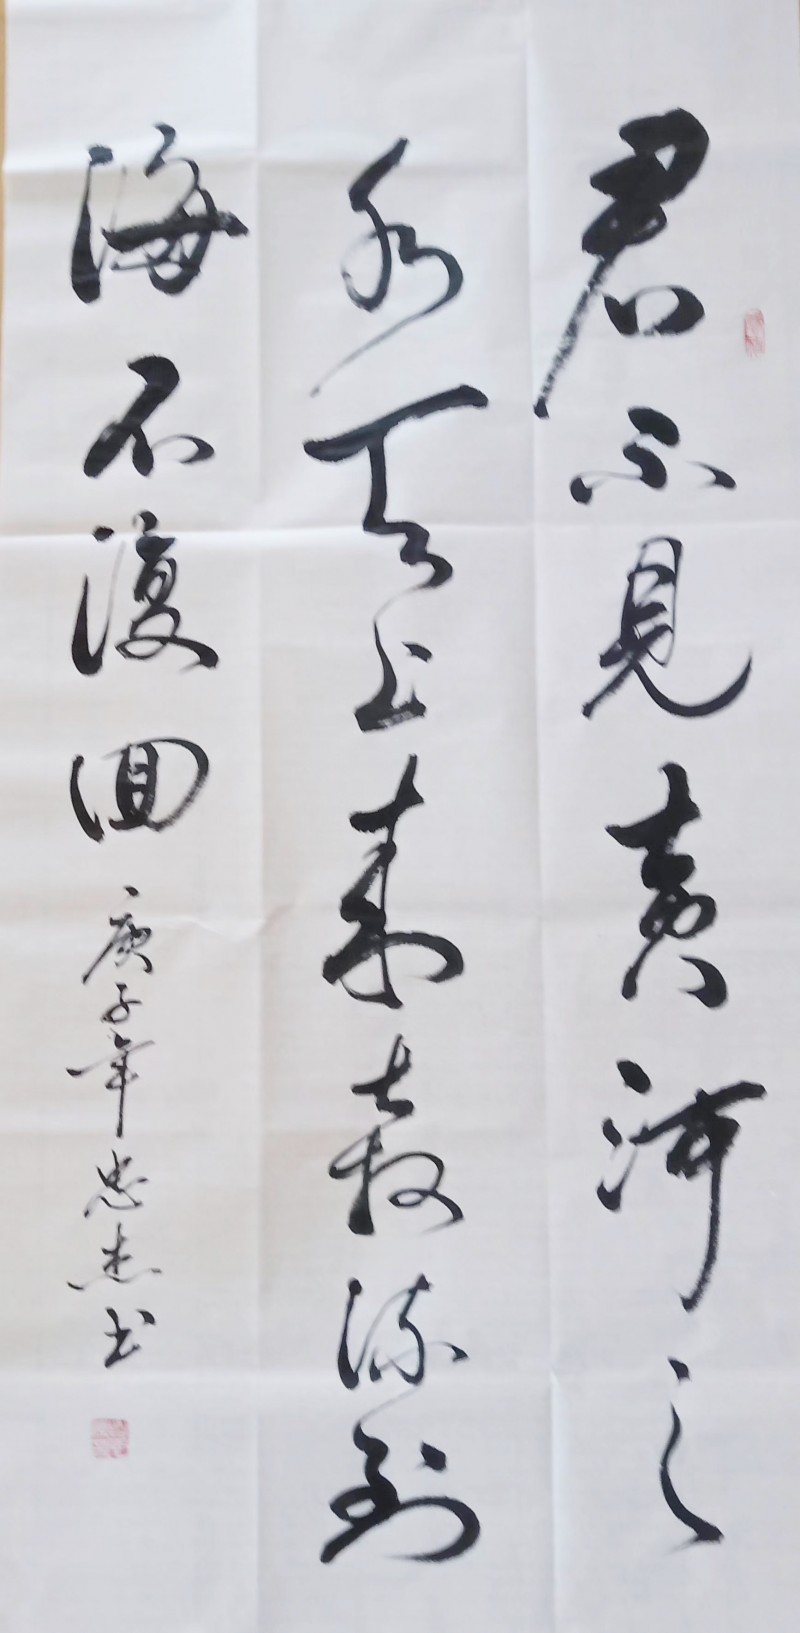 君不見黄河之
水天上来奔流到
海不復回 庚子年忠杰书